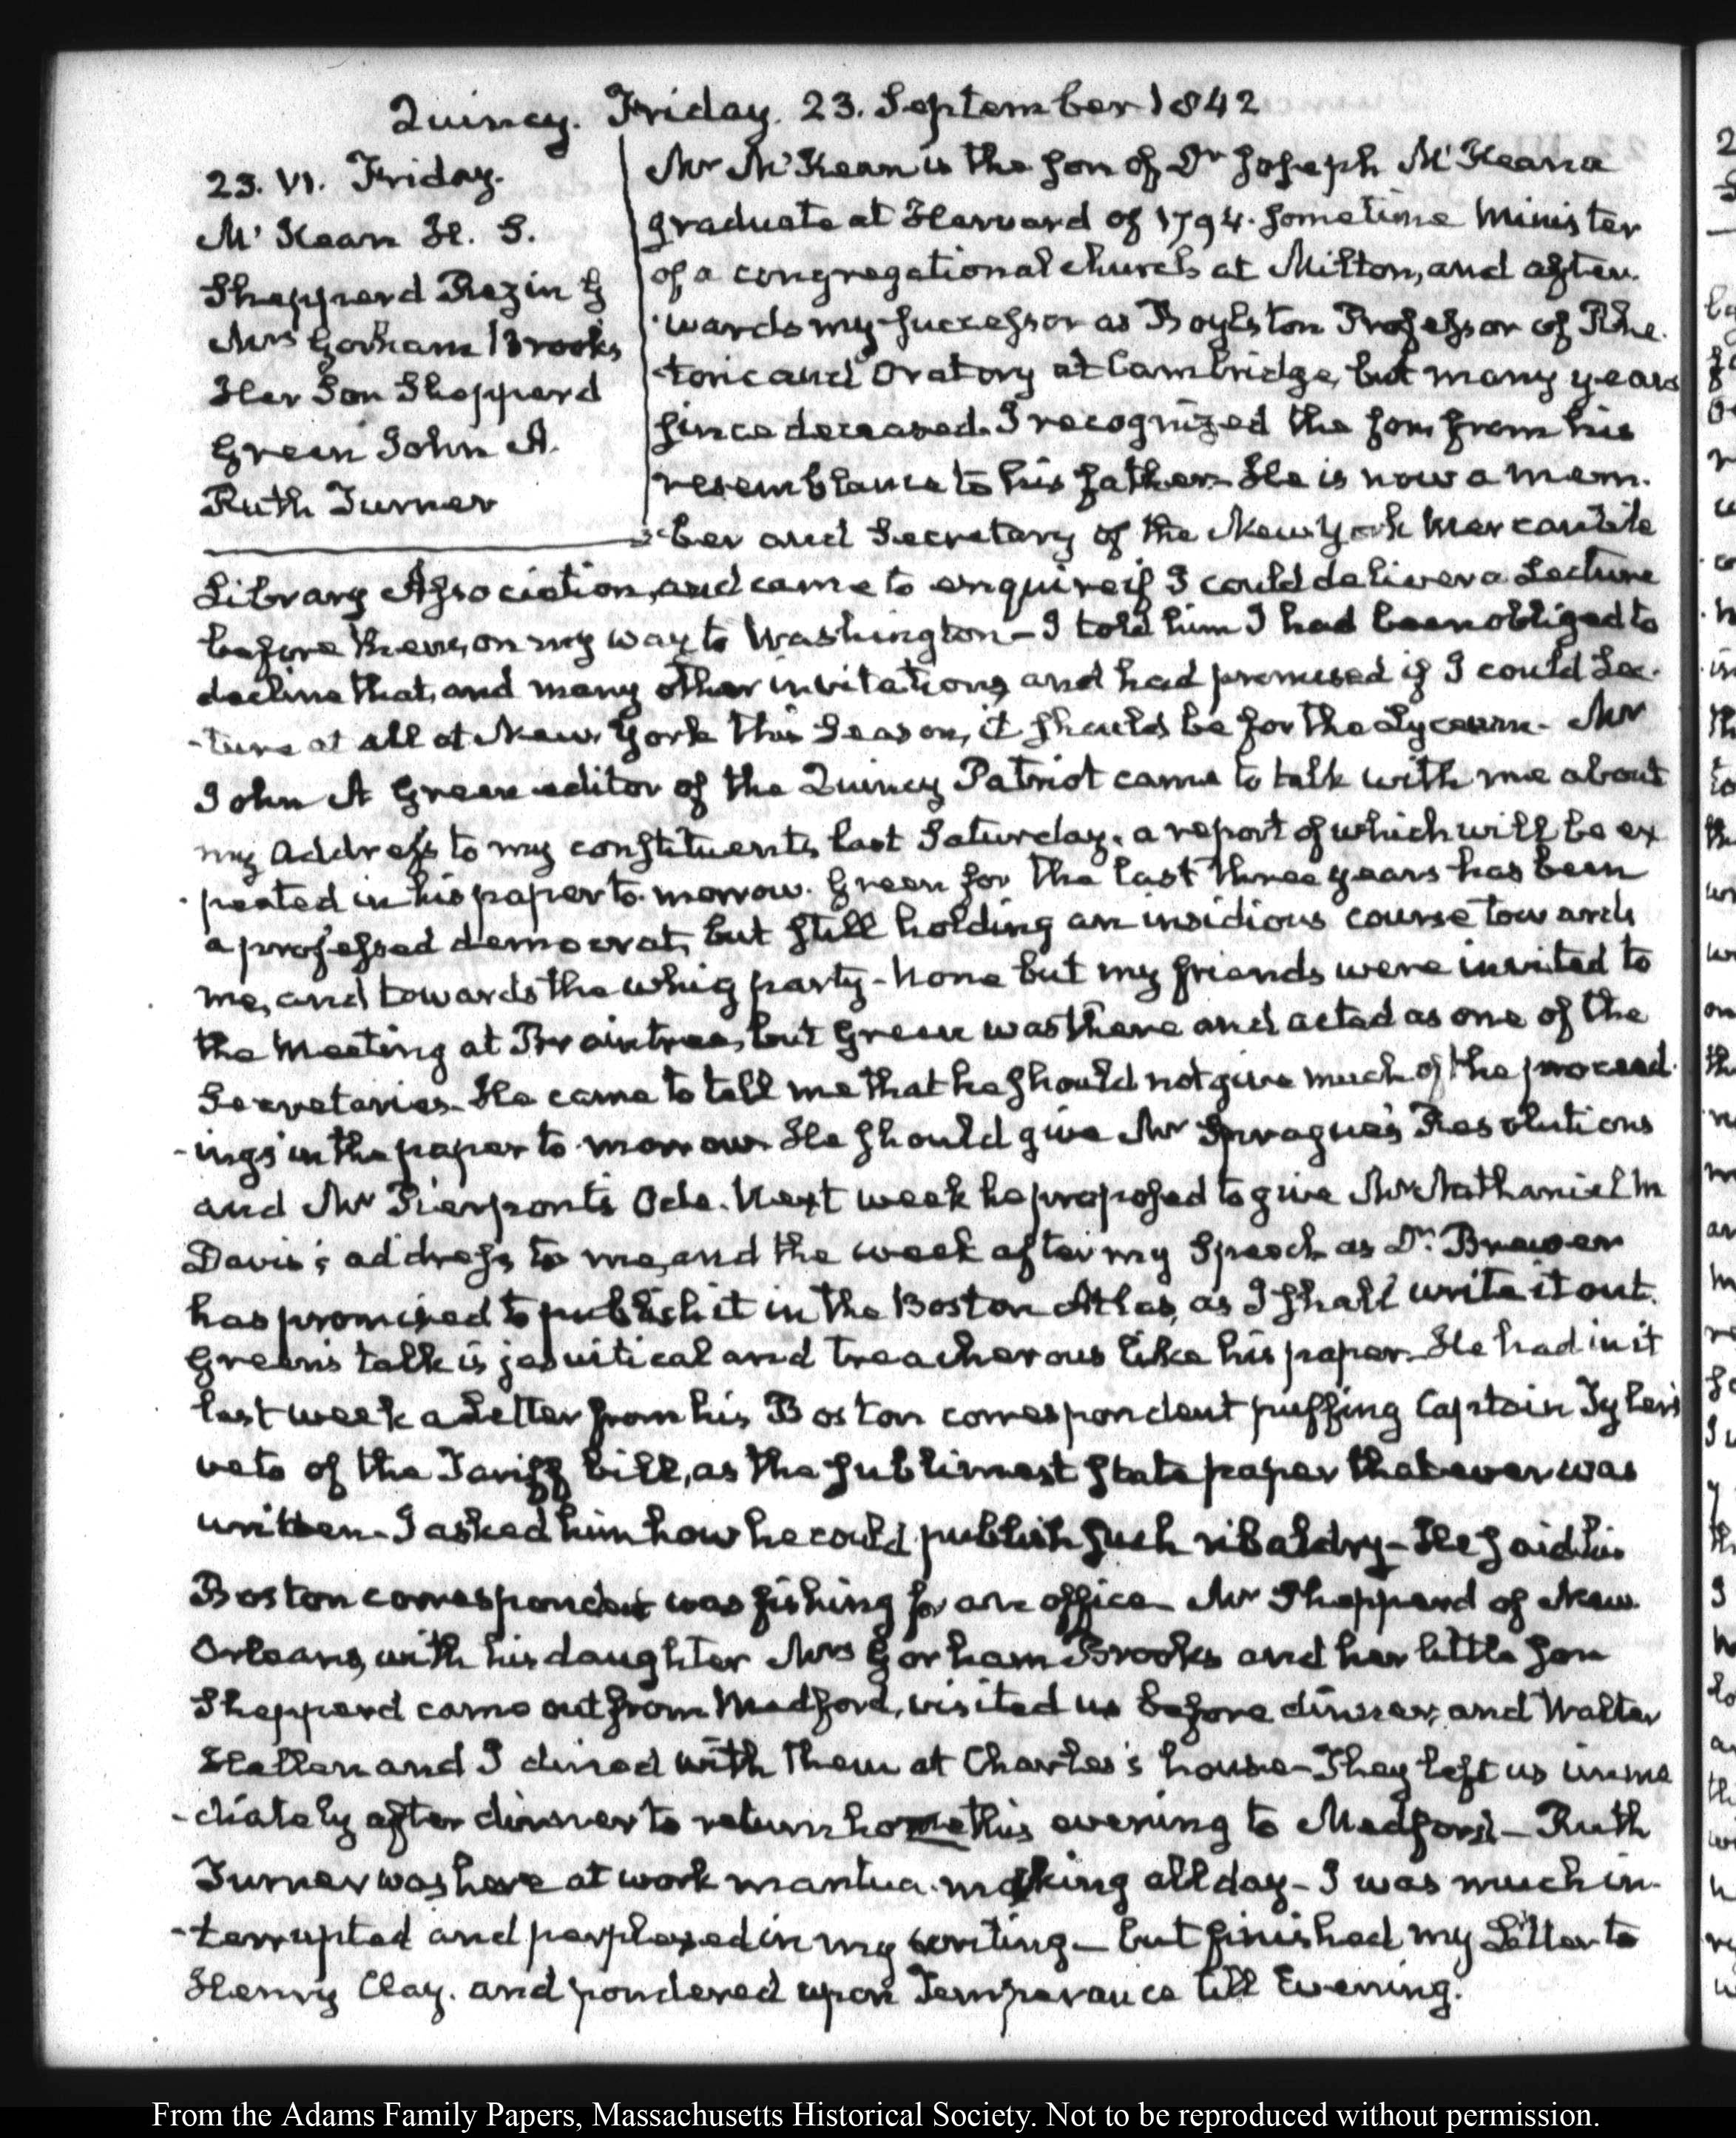 Quincy. Friday. 23. September 1842
23. VI. Friday.
McKean H. S.
Shepperd Rezin
Mrs Gorham Brooks
Her Son Shepperd
Green John A.
Ruth Turner
Mr McKean is the son of Dr Joseph McKean a
graduate at Harvard of 1794. sometime Minister
of a congregational church at Milton, and after-
-wards my successor as Boylston Professor of Rhe-
-toric and Oratory at Cambridge, but many years
since deceased. I recognized the son from his
resemblance to his father. He is now a mem-
-ber and Secretary of the New-York Mercantile
Library Association, and came to enquire if I could deliver a Lecture
before them, on my way to Washington - I told him I had been obliged to
decline that, and many other invitations, and had promised if I could Lec-
-ture at all at New York this Season, it should be for the Lyceum - Mr
John A Green editor of the Quincy Patriot came to talk with me about
my Address to my constituents last Saturday, a report of which will be ex
-pected in his paper to-morrow. Green for the last three years has been
a professed democrat, but still holding an insidious course towards
me, and towards the whig party - None but my friends were invited to
the Meeting at Braintree, but Green was there and acted as one of the
Secretaries. He came to tell me that he should not give much of the proceed-
-ings in the paper to-morrow. He should give Mr Sprague's Resolutions
and Mr Pierpont's Ode. Next week he proposed to give Mr Nathaniel M
Davis's address to me, and the week after my Speech as Dr. Brewer
has promised to publish it in the Boston Atlas, as I shall write it out.
Green's talk is jesuitical and treacherous like his paper. He had in it
last week a Letter from his Boston correspondent puffing Captain Tyler's
veto of the Tariff bill, as the sublimest state paper that ever was
written - I asked him how he could publish such ribaldry - He said his
Boston correspondent was fishing for an office - Mr Shepperd of New-
Orleans, with his daughter Mrs Gorham Brooks and her little son
Shepperd came out from Medford, visited us before dinner, and Walter
Hellen and I dined with them at Charles's house - They left us imme
-diately after dinner to return home this evening to Medford - Ruth
Turner was here at work mantua-making all day - I was much in-
-terrupted and perplexed in my writing - but finished my Letter to
Henry Clay. and pondered upon Temperance till Evening.
From the Adams Family Papers, Massachusetts Historical Society. Not to be reproduced without permission.